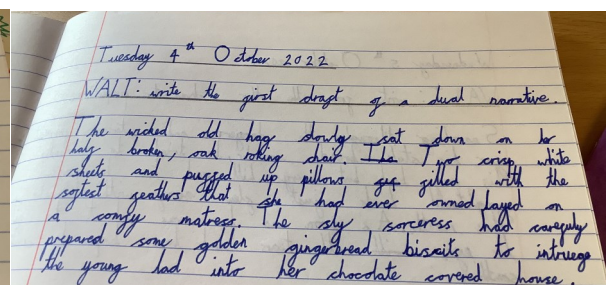 Tuesday 4th October 2022
WALT: write the first draft of a dual narrative.
The wicked old hag slowly sat down on her
half broken, oak roking chair. The Two crisp, white
sheets and puffed up pillows filled with the
softest feathers that she had ever owned layed on
a comfy matress. The sly sorceress had carefuly
prepared some golden gingerbread biscuits to intruege
the young lad into her chocolate covered house.